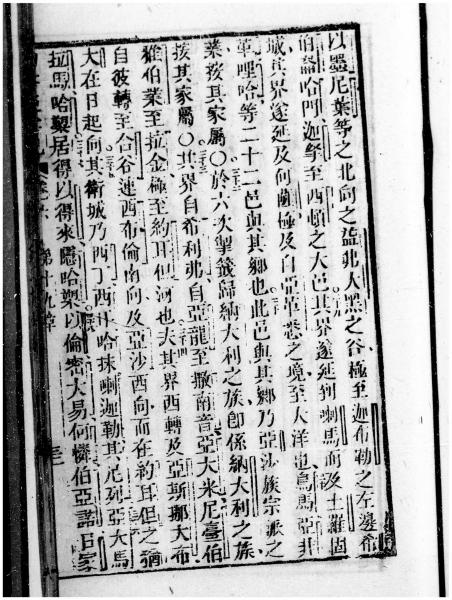 以墨尼葉等之北向之益弗大黑之谷極至迦布勒之左邊希
伯啚哈門迦拏至西頓之大邑其界遂延到喇馬而及土羅固
城其界遂延及何薩極及自亞革卷之境至大洋也烏馬亞非
革哩哈等二十二邑與其鄉也此邑與其鄉乃亞沙族宗派之
業按其家屬○於六次掣籤歸納大利之族卽係納大利之族
按其家屬○其界自希利弗自亞龍至撒喃音亞大米尼臺伯
雅伯業至拉金極至約耳但河也夫其界西轉及亞斯那大布
自彼轉至合谷連西布倫南向及亞沙西向而在約耳但之猶
大在日起向其衛城乃西丁西耳哈抹喇迦勒其尼列亞大馬
拉馬哈鑿居得以得來隱哈鑿以倫密大易何憐伯亞諾
卷六 第十九章 三